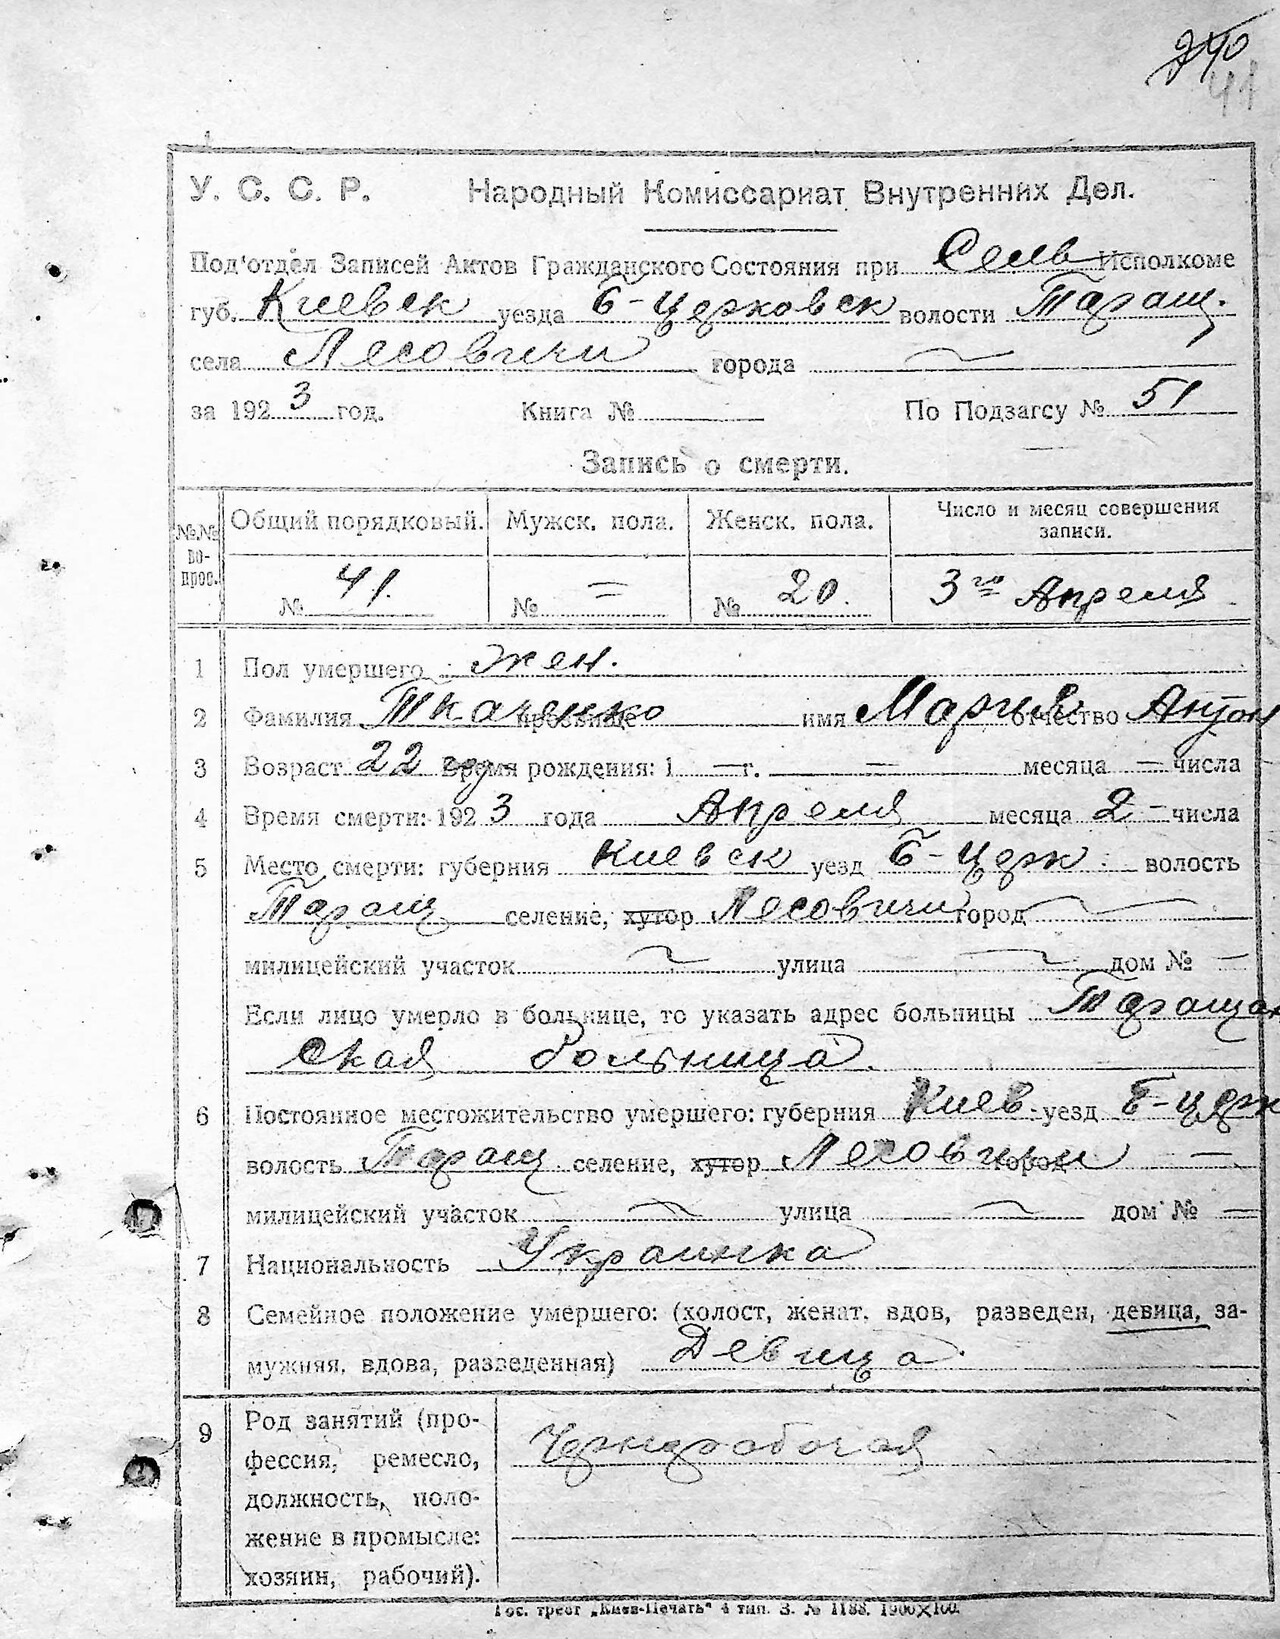 240
41
У. С. С. Р. Народный Комиссариат Внутренних Дел.
Под'отдел Записей Актов Гражданского Состояния при Сельв Исполкоме
губ. Киевск уезда Б-Церковск волости Таращ.
села Лесовичи города
за 1923 год. Книга № По Подзагсу № 51
Запись о смерти.
№№ вопрос. Общий порядковый. Мужск. пола. Женск. пола. Число и месяц совершения записи.
№ 41. № = № 20. 3го Апреля
1 Пол умершего жен.
2 Фамилия Ткаченко прозвище имя Мария отчество Антон
3 Возраст 22 год время рождения: 1 — г. — месяца — числа
4 Время смерти: 1923 года Апреля месяца 2 — числа
5 Место смерти: губерния Киевск уезд Б-Церк. волость
Таращ селение, хутор Лесовичи город
милицейский участок улица дом № —
Если лицо умерло в больнице, то указать адрес больницы Таращан
ская больница.
6 Постоянное местожительство умершего: губерния Киев. уезд Б-Церк
волость Таращ селение, хутор Лесовичи город —
милицейский участок улица дом № —
7 Национальность Украинка
8 Семейное положение умершего: (холост, женат, вдов, разведен, девица, за-
мужняя, вдова, разведенная) Девица.
9 Род занятий (про- Чернорабочая
фессия, ремесло,
должность, поло-
жение в промысле:
хозяин, рабочий).
Гос. трест „Киев-Печать" 4 тип. З. № 1188. 1900×100.